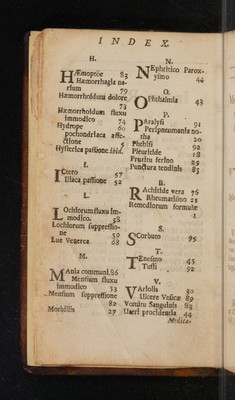 INDEX.
H.
HÆmoptöe 83
Hæmorrhagia na-
rium 79
Hæmorrhoidum dolore
73
Hæmorrhoidum fluxu
immodico 74
Hydrope 60
pochondriaca affe-
ctione 5
Hysterica passione ibid.
I.
ICtero 57
Iliaca passione 52
L.
LOchiorum fluxu im-
modico. 58
Lochiorum suppressio-
ne 59
Lue Venerea 68
M.
MAnia communi. 86
Mensium fluxu
immodico 53
Mensium suppressione
82
Morbillis 27
N.
NEphritico Parox-
ysmo 44
O.
OPhthalmia 43
P.
PAralysi 91
Peripneumonia no-
tha 20
Phthisi 92
Pleuritide 18
Pruritu ferino 25
Punctura tendinis 85
R.
RAchitide vera 76
Rheumatismo 21
Remediorum formulæ
1
S.
SCorbuto 95
T.
TEnesmo 45
Tussi 92
V.
VAriolis 30
Ulcere Vesicæ 89
Vomitu Sanguinis 83
Uteri procidentia 44
Medica-